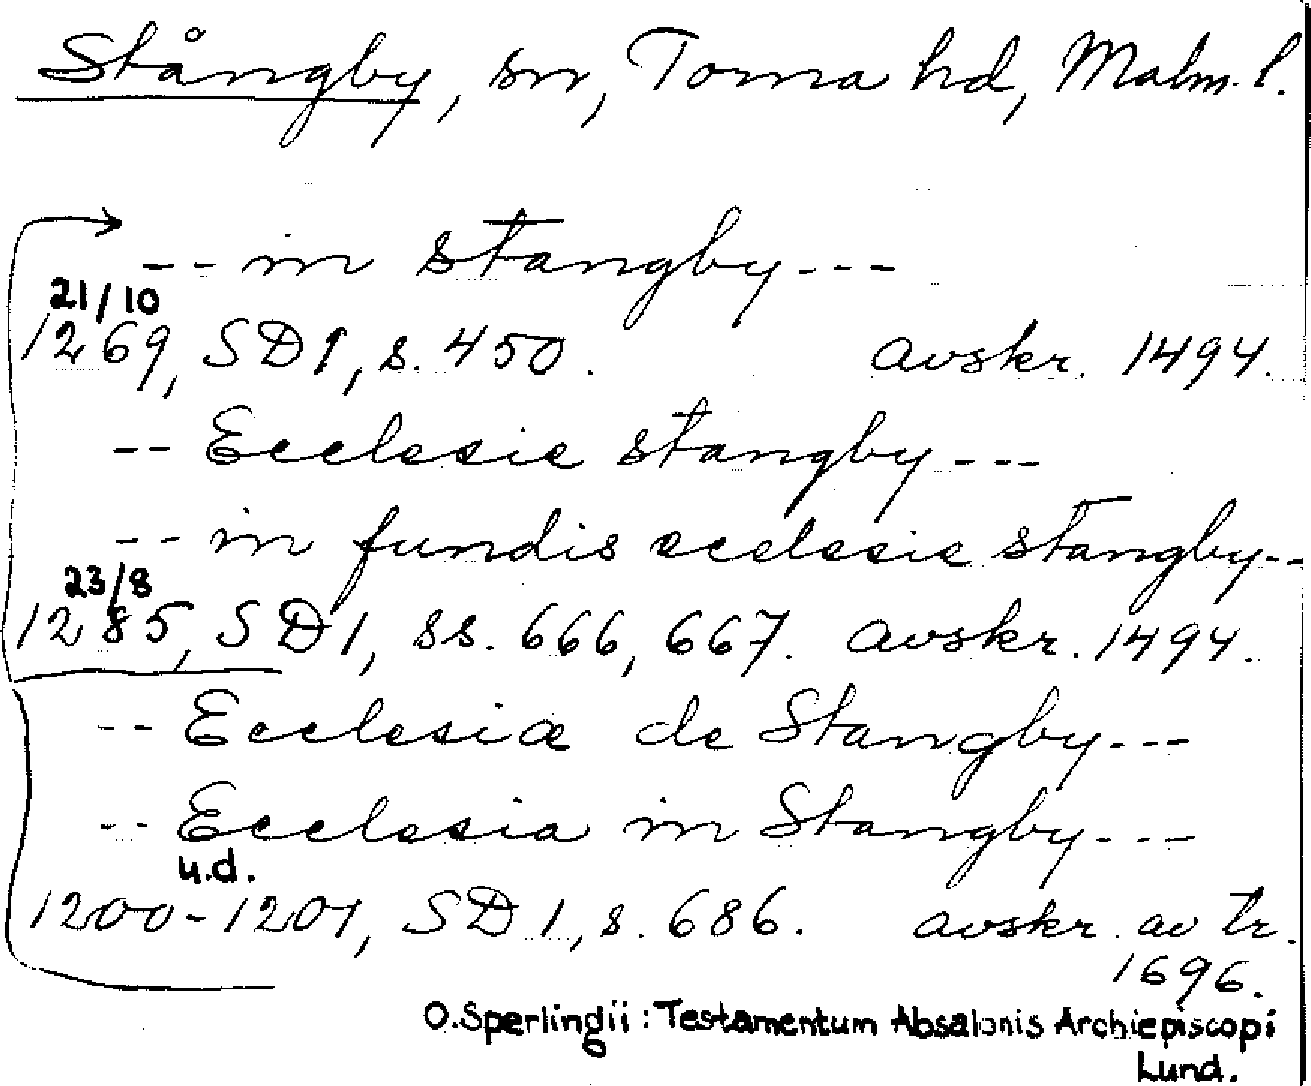 Stångby, sn, Torna hd, Malm. l.
-- in stangby ---
21/10
1269, SD1, s. 450. avskr. 1494.
-- Ecclesie stangby ---
-- in fundis ecclesie stangby --
23/8
1285, SD1, ss. 666, 667. avskr. 1494.
-- Ecclesiæ de Stangby ---
-- Ecclesia in Stangby ---
u.d.
1200-1201, SD1, s. 686. avskr. av tr.
1696.
O.Sperlingii: Testamentum Absalonis Archiepiscopi
Lund.